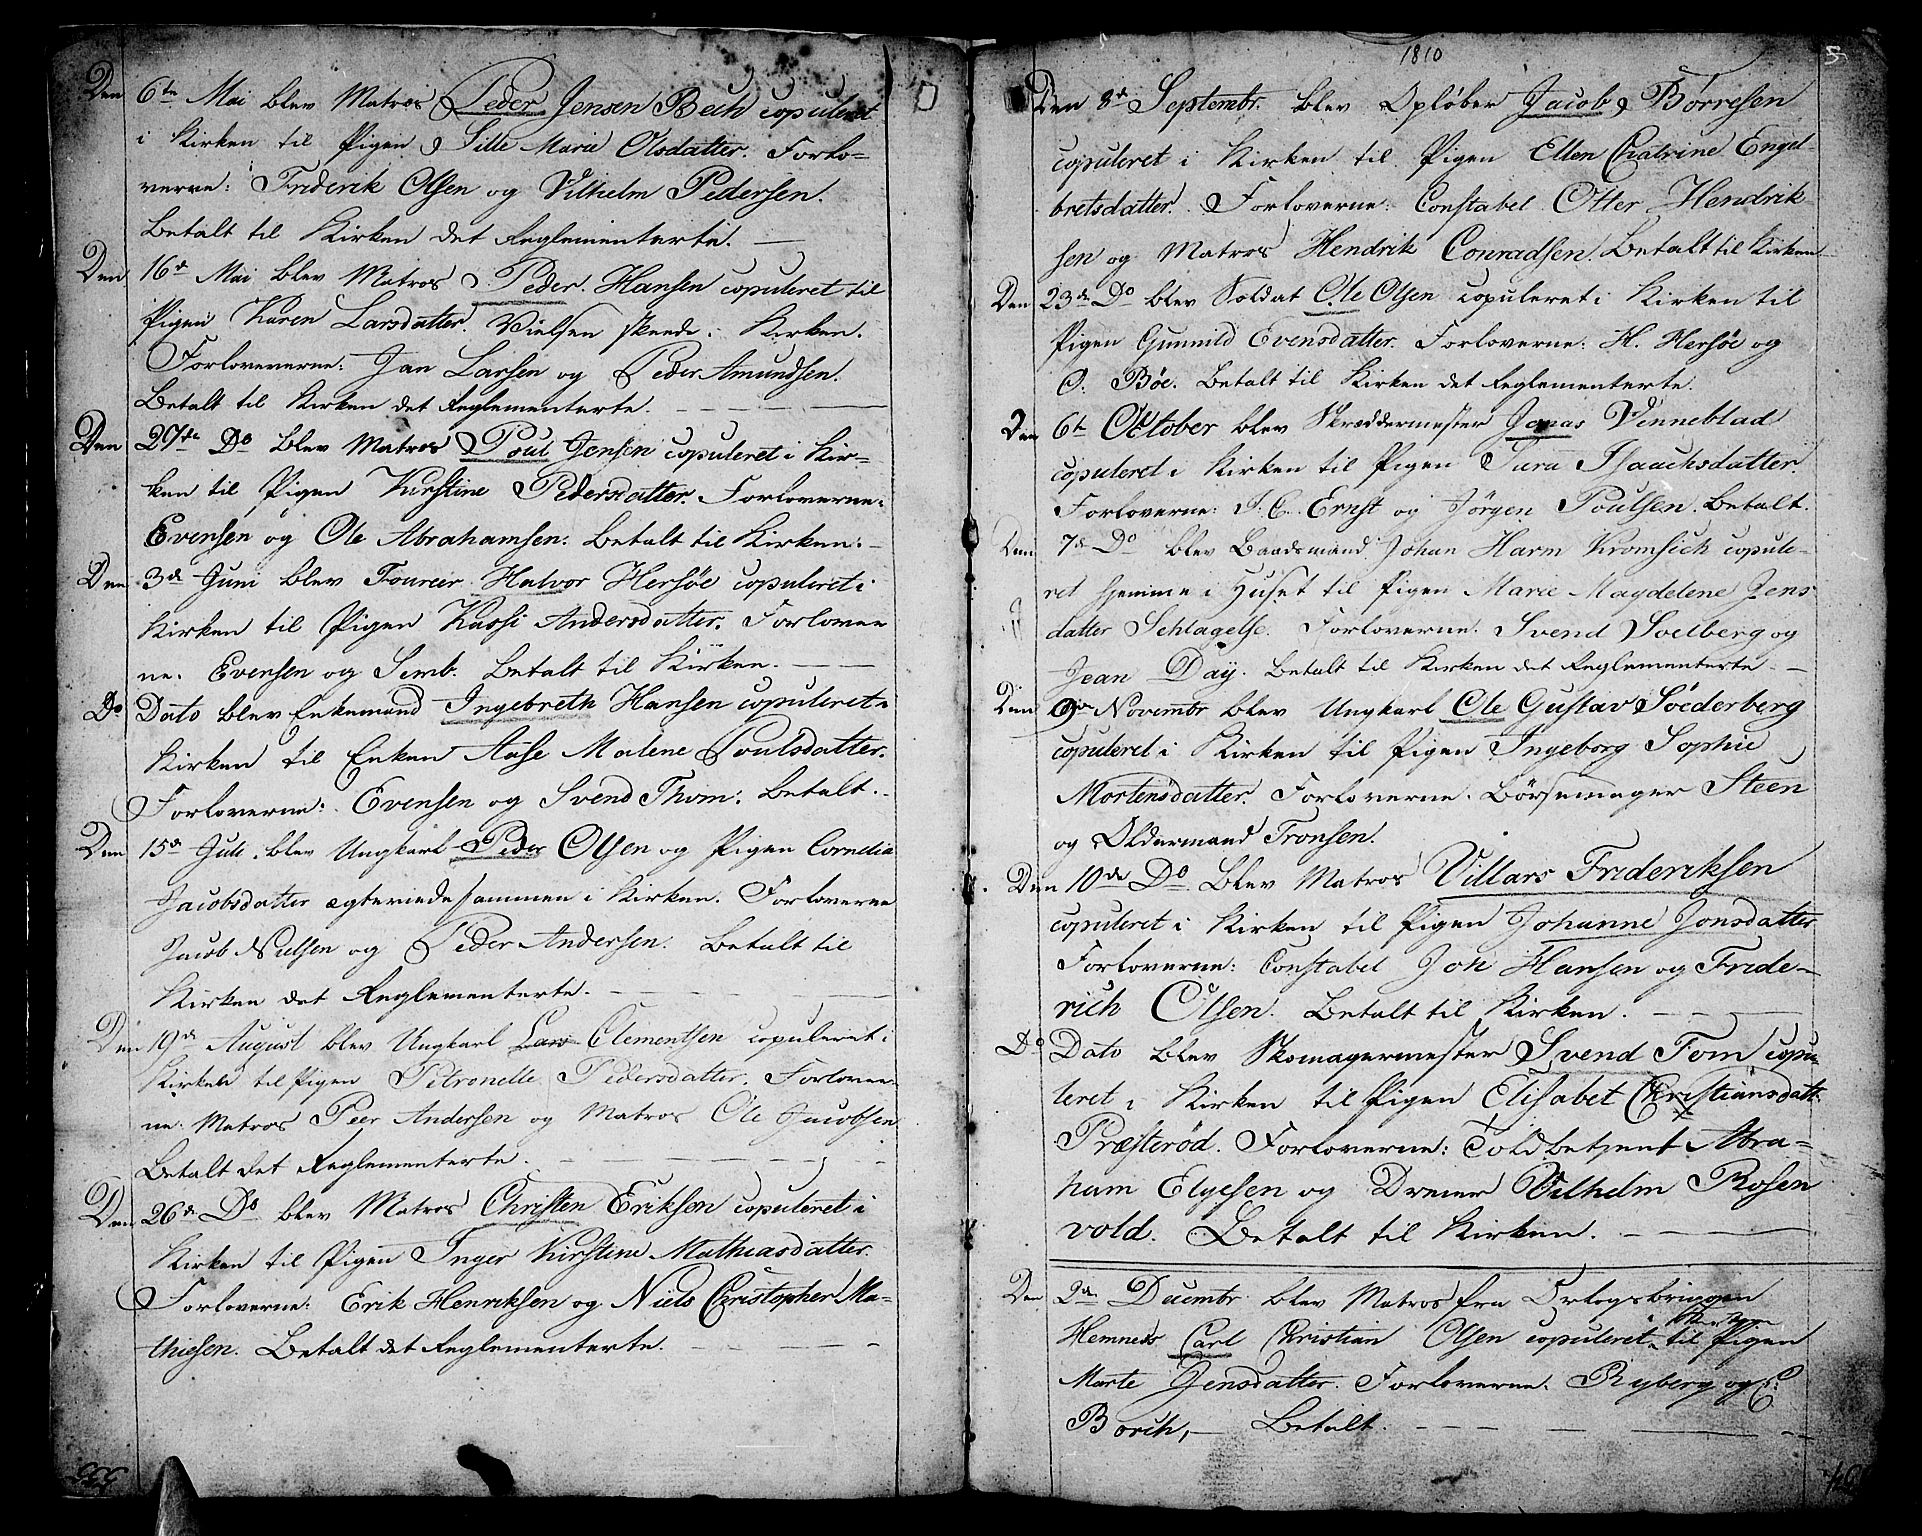 Den 6te Mai blev Matros Peder Jensen Bech copuleret
i Kirken til Pigen Sille Marie Olsdatter. Forlo-
verne: Friderik Olsen og Vilhelm Pedersen.
Betalt til Kirken det Reglementerte. —
Den 16de Mai blev Matros Peder Hansen copuleret til
Pigen Karen Larsdatter. Vielsen skeede i Kirken.
Forloverne: Jan Larsen og Peder Amundsen.
Betalt til Kirken det Reglementerte. — — —
Den 27de Do blev Matros Poul Jensen copuleret i Kir-
ken til Pigen Kirstine Pedersdatter. Forloverne:
Evensen og Ole Abrahamsen. Betalt til Kirken. —
Den 3de Juni blev Foureer Halvor Hersøe copuleret i
Kirken til Pigen Kassi Andersdatter. Forlover
ne. Evensen og Semb. Betalt til Kirken. — —
Do Dato blev Enkemand Ingebreth Hansen copuleret i
Kirken til Enken Aase Malene Poulsdatter.
Forloverne: Evensen og Svend Thom. Betalt. —
Den 15de Juli blev Ungkarl Peder Olsen og Pigen Cornelia
Jacobsdatter ægteviede sammen i Kirken. Forloverne
Jacob Nielsen og Peder Andersen. Betalt til
Kirken det Reglementerte. — — —
Den 19de August blev Ungkarl Lars Clementsen copuleret i
Kirken til Pigen Petronelle Pedersdatter. Forlover-
ne. Matros Peer Andersen og Matros Ole Jacobsen
Betalt det Reglementerte. — — —
Den 26de Do blev Matros Christen Eriksen copuleret i
Kirken til Pigen Inger Kirstine Mathiasdatter.
Forloverne: Erik Henriksen og Niels Christopher Ma-
thiesen. Betalt det Reglementerte. — — —
1810
5
Den 8de Septembr. blev Opløber Jacob Børresen
copuleret i Kirken til Pigen Ellen Chatrine Engel-
bretsdatter. Forloverne: Constabel Otter Hendrik
sen og Matros Hendrik Conradsen. Betalt til Kirken
Den 23de Do blev Soldat Ole Olsen copuleret i Kirken til
Pigen Gunnild Evensdatter. Forloverne: H. Hersøe og
O. Bøe. Betalt til Kirken det Reglementerte.
Den 6te October blev Skræddermester Jonas Vinneblad
copuleret i Kirken til Pigen Sara Isaachsdatter.
Forloverne: I. C. Ernst og Jørgen Poulsen. Betalt.
Den 7de Do blev Baadsmand Johan Harm Kromsich copule-
ret hjemme i Huset til Pigen Marie Magdelene Jens
datter Schlagelse. Forloverne. Svend Soelberg og
Jean Day. Betalt til Kirken det Reglementerte. —
Den 9de Novembr blev Ungkarl Ole Gustav Søederberg
copuleret i Kirken til Pigen Ingeborg Sophie
Mortensdatter. Forloverne. Børsemager Steen
og Oldermand Tronsen.
Den 10de Do blev Matros Villars Frideriksen
copuleret i Kirken til Pigen Johanne Jonsdatter
Forloverne: Constabel Joh Hansen og Fride-
rich Olsen. Betalt til Kirken. — — —
Do Dato blev Skomagermester Svend Tom copu-
leret i Kirken til Pigen Elisabet Christiansdatt.
Præsterød. Forloverne: Toldbetjent Abra-
ham Elgesen og Dreier Vilhelm Rosen
vold. Betalt til Kirken. — —
Den 2de Decembr blev Matros fra Orlogsbriggen
Hemnes Carl Christian Olsen copuleret til Pigen
Marte Jensdatter. Forloverne. Ryberg og C.
Borch, — Betalt. — — —